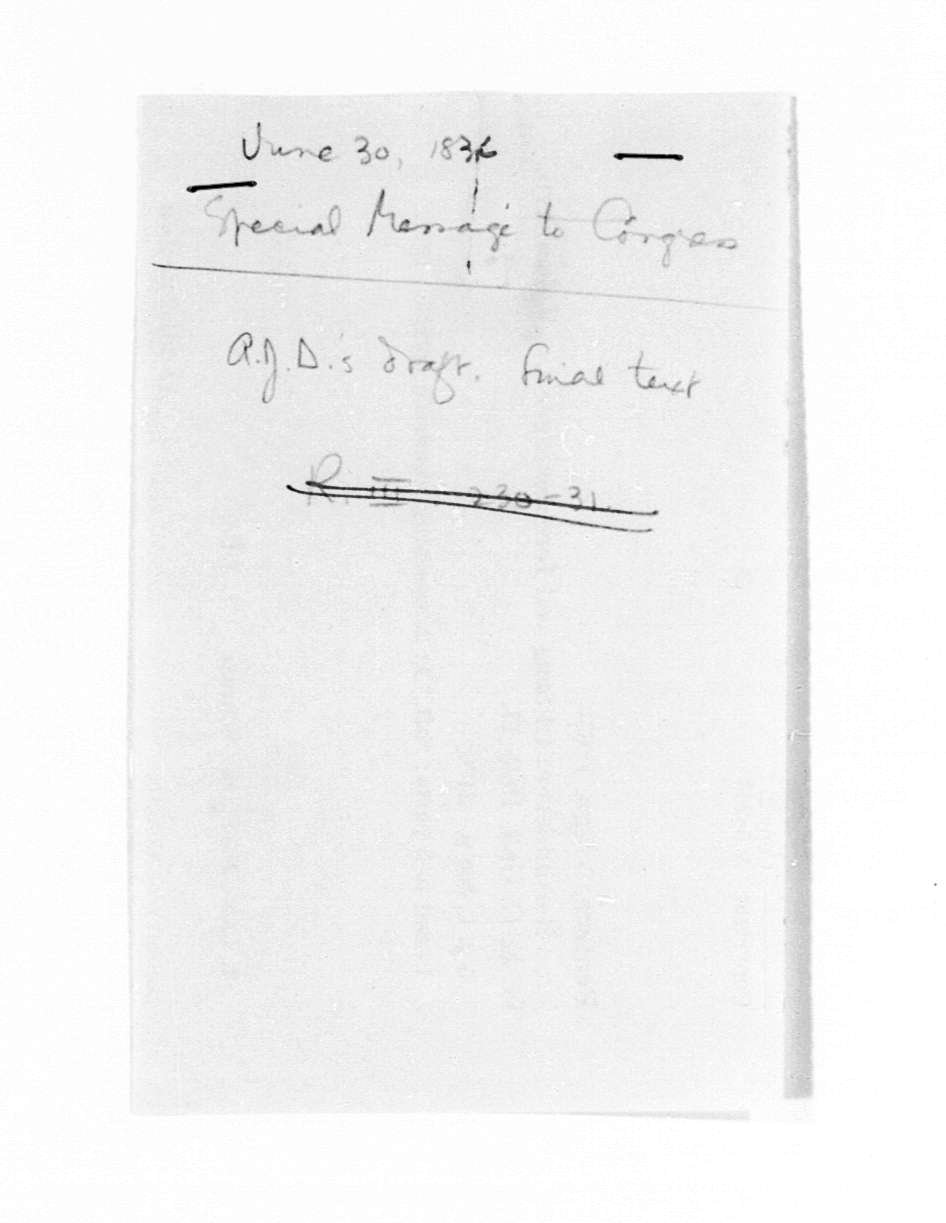 June 30,
Special Message to Congress
A.J.D.'s draft. Final text
R. III 230-31